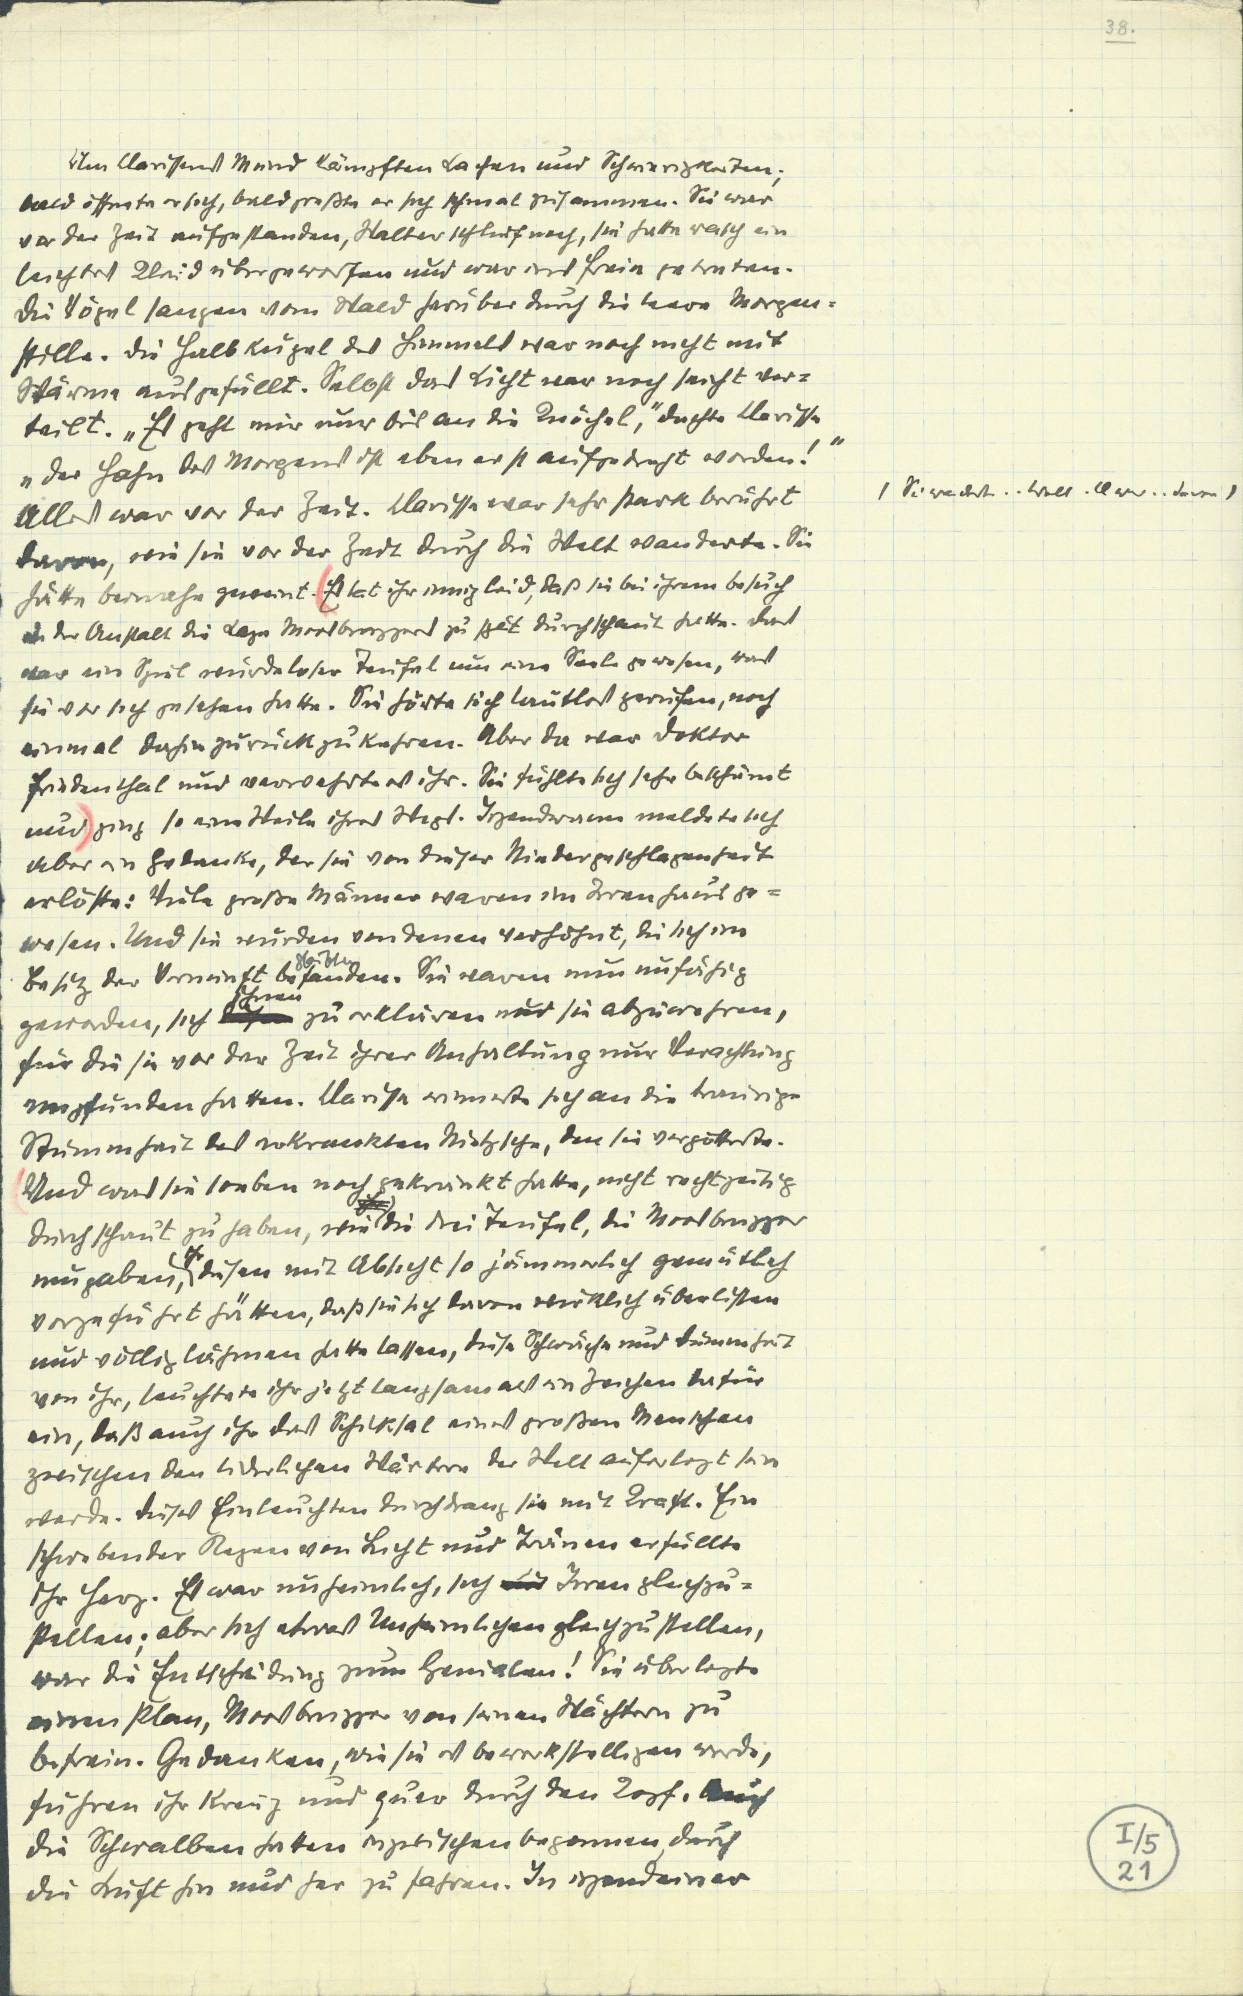 38.
Um Clarissens Mund kämpften Lachen und Schwierigkeiten;
bald öffnete er sich, bald preßte er sich schmal zusammen. Sie war
vor der Zeit aufgestanden, Walter schlief noch, sie hatte rasch ein
leichtes Kleid übergeworfen und war ins Freie getreten.
Die Vögel sangen vom Wald herüber durch die leere Morgen=
stille. Die Halbkugel des Himmels war noch nicht mit
Wärme ausgefüllt. Selbst das Licht war noch seicht ver=
teilt. „Es geht mir nur bis an die Knöchel," dachte Clarisse
„der Hahn des Morgens ist eben erst aufgedreht worden!"
Alles war vor der Zeit. Clarisse war sehr stark berührt
davon, wie sie vor der Zeit durch die Welt wanderte. Sie
/ Sie wandert .. Welt . Cl war .. davon /
hätte beinahe geweint. (Es tat ihr innig leid, daß sie bei ihrem Besuch
in der Anstalt die Lage Moosbruggers zu spät durchschaut hatte. Das
war ein Spiel würdeloser Teufel um eine Seele gewesen, was
sie vor sich gesehen hatte. Sie hörte sich lautlos gerufen, noch
einmal dahin zurückzukehren. Aber da war Doktor
Friedenthal und verwehrte es ihr. Sie fühlte sich sehr beschämt
und) ging so eine Weile ihres Wegs. Irgendwann meldete sich
aber ein Gedanke, der sie von dieser Niedergeschlagenheit
erlöste: Viele große Männer waren im Irrenhaus ge=
wesen. Und sie wurden von denen verhöhnt, die sich im
Besitz der Vernunft befanden. Sie waren nun unfähig
geworden, sich ihnen zu erklären und sie abzuwehren,
für die sie vor der Zeit ihrer Anhaltung nur Verachtung
empfunden hatten. Clarisse erinnerte sich an die traurige
Stummheit des erkrankten Nietzsche, den sie vergötterte.
(Und was sie soeben noch gekränkt hatte, nicht rechtzeitig
durchschaut zu haben, wie die drei Teufel, die Moosbrugger
umgaben, ihr diesen mit Absicht so jämmerlich gemütlich
vorgeführt hätten, daß sie sich davon wirklich überlisten
und völlig lähmen hatte lassen, diese Schwäche und Dummheit
von ihr, leuchtete ihr jetzt langsam als ein Zeichen dafür
ein, daß auch ihr das Schicksal eines großen Menschen
zwischen den liederlichen Wärtern der Welt auferlegt sein
werde. Dieses Einleuchten durchdrang sie mit Kraft. Ein
schwebender Regen von Licht und Tränen erfüllte
ihr Herz. Es war unheimlich, sich Irren gleichzu=
stellen; aber sich etwas Unheimlichen gleichzustellen,
war die Entscheidung zum Genialen! Sie überlegte
einen Plan, Moosbrugger von seinen Wächtern zu
befrein. Gedanken, wie sie es bewerkstelligen werde,
fuhren ihr kreuz und quer durch den Kopf. Auch
die Schwalben hatten inzwischen begonnen durch
die Luft hin und her zu fahren. In irgendeiner
I/5
21